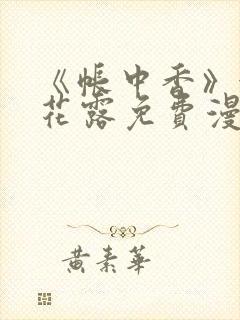 《帐中香》
花露免费漫
黄素华